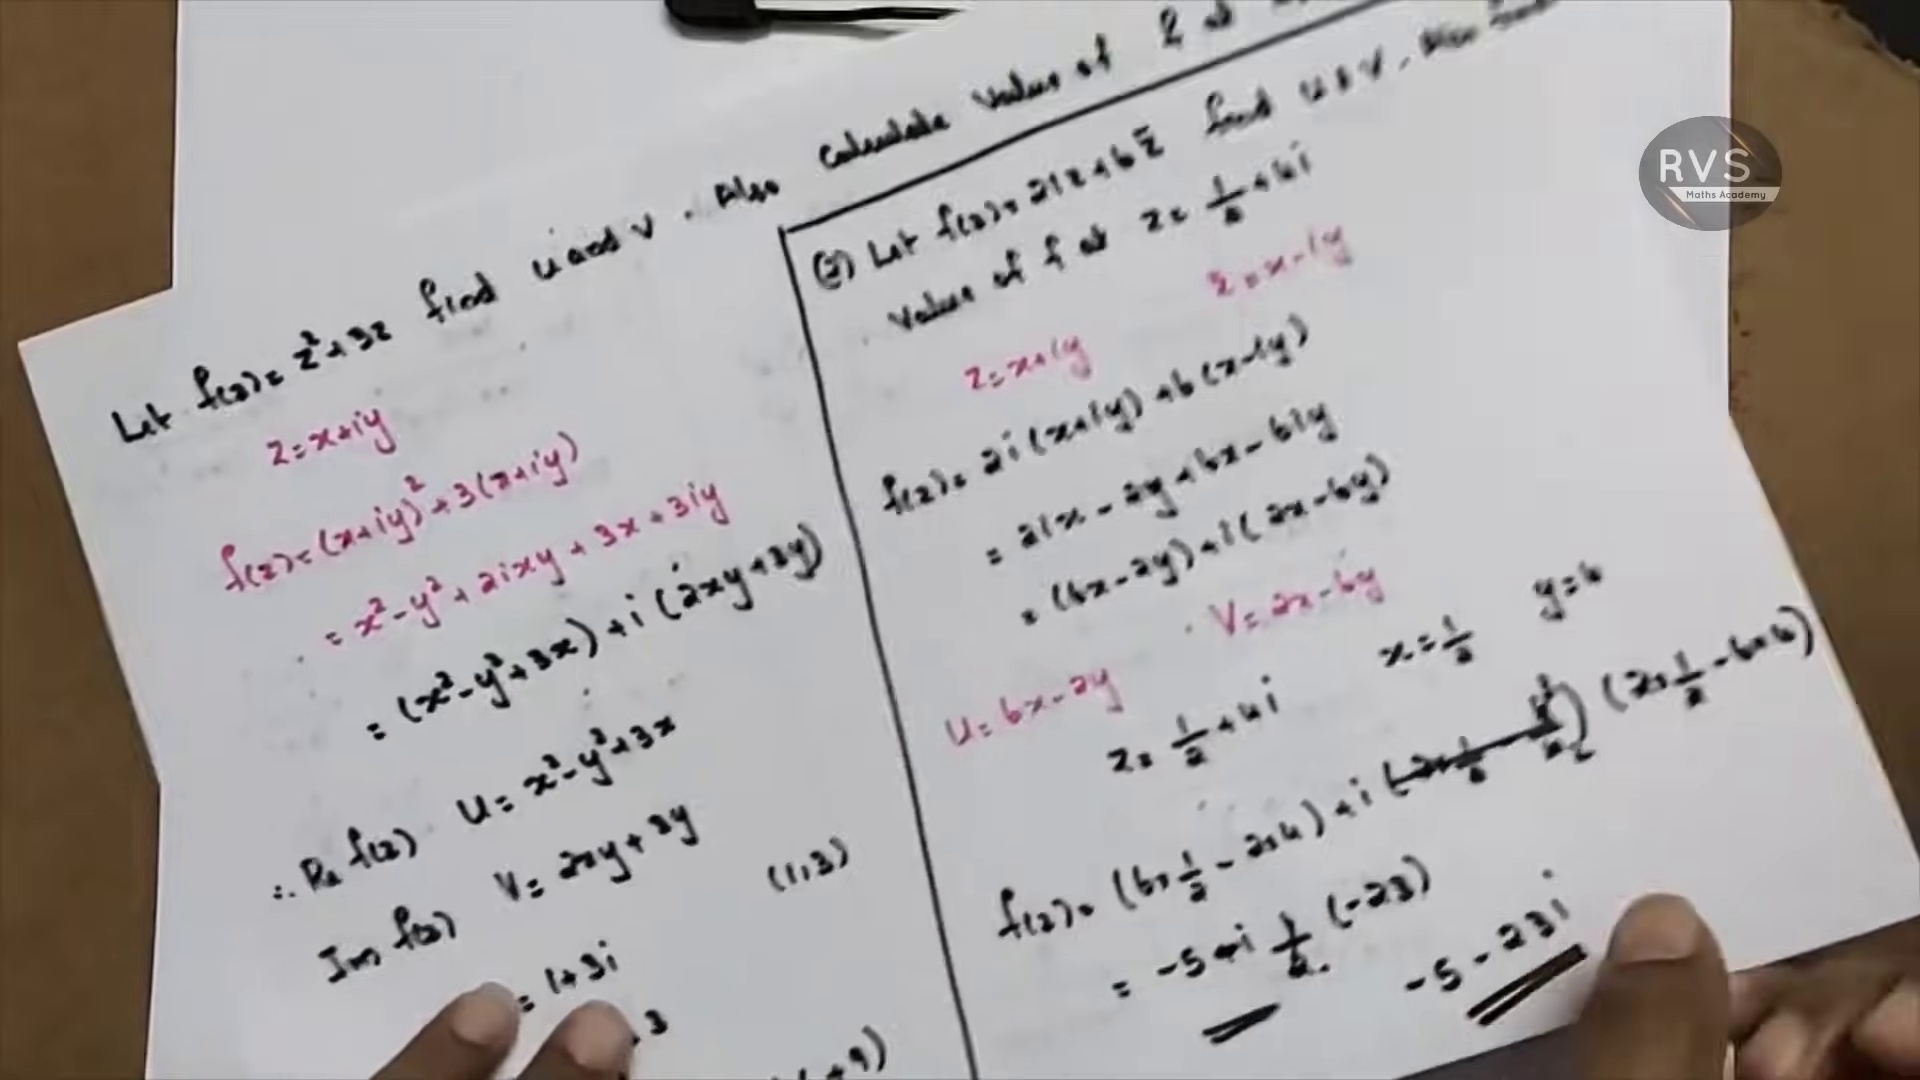 Let f(z) = z² + 3z find u and v. Also calculate value of f at
z = x+iy
f(z) = (x+iy)² + 3(x+iy)
= x² - y² + 2ixy + 3x + 3iy
= (x² - y² + 3x) + i (2xy + 3y)
∴ Re f(z) u = x² - y² + 3x
Im f(z) v = 2xy + 3y
(1,3)
= 1+3i
3
+9)
(2) Let f(z) = 2iz + 6z̄ find u & v. Also
value of f at z = 1/2 + 4i
z = x+iy z̄ = x-iy
f(z) = 2i (x+iy) + 6 (x-iy)
= 2ix - 2y + 6x - 6iy
= (6x - 2y) + i (2x - 6y)
u = 6x - 2y v = 2x - 6y
z = 1/2 + 4i x = 1/2 y = 4
f(z) = (6×1/2 - 2×4) + i (2×1/2 - 6×4)
= -5 + i (-23)
-5 - 23i
RVS
Maths Academy